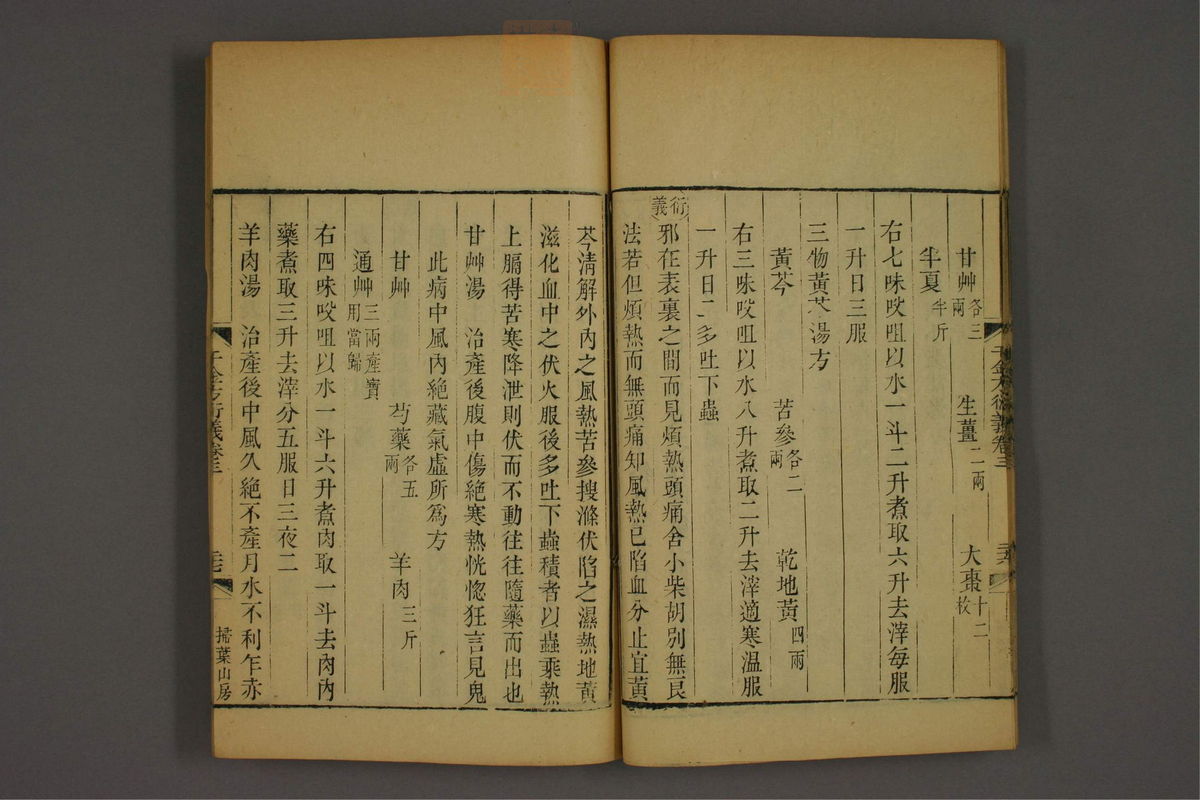 甘艸各三兩　生薑二兩　大棗十二枚
半夏半斤
右七味㕮咀以水一斗二升煮取六升去滓每服
一升日三服
三物黃芩湯方
黃芩　苦參各二兩　乾地黃四兩
右三味㕮咀以水八升煮取二升去滓適寒温服
一升日二多吐下蟲
衍義
邪在表裏之間而見煩熱頭痛舍小柴胡別無良
法若但煩熱而無頭痛知風熱已陷血分止宜黃
芩淸解外內之風熱苦參搜滌伏陷之濕熱地黃
滋化血中之伏火服後多吐下蟲積者以蟲乘熱
上膈得苦寒降泄則伏而不動往往隨藥而出也
甘艸湯　治產後腹中傷絕寒熱恍惚狂言見鬼
此病中風內絕藏氣虛所爲方
甘艸　芍藥各五兩　羊肉三斤
通艸三兩產寶用當歸
右四味㕮咀以水一斗六升煮肉取一斗去肉內
藥煮取三升去滓分五服日三夜二
羊肉湯　治產後中風久絕不產月水不利乍赤
千金方衍義卷三
掃葉山房